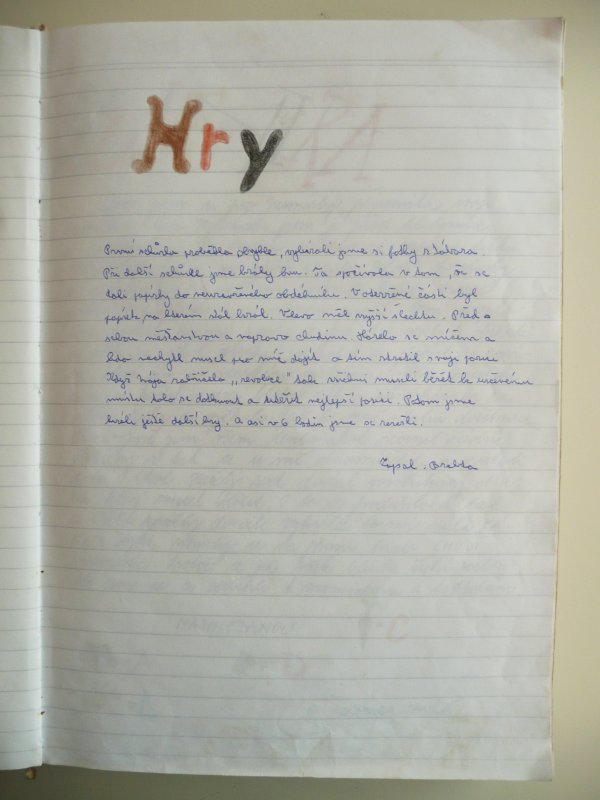 Hry
První schůzka proběhla obvykle, vybírali jsme si fotky z tábora.
Při další schůzce jsme hráli hru. Ta spočívala v tom, že se
dali papírky do neuzavřeného obdélníku. V otevřené části byl
papírek na kterém stál král. Vlevo měl vyšší šlechtu. Před
sebou měšťanstvou a napravo chudinu. Házelo se míčem a
kdo nechytl musel pro míč dojít a tím ztratil svoji pozici
Když Mája zakřičela „revoluce" tak všichni museli běžet k určenému
místu toho se dotknout a sebrat nejlepší pozici. Potom jsme
hráli ještě další hry. A asi v 6 hodin jsme se rozešli.
Zapsal: